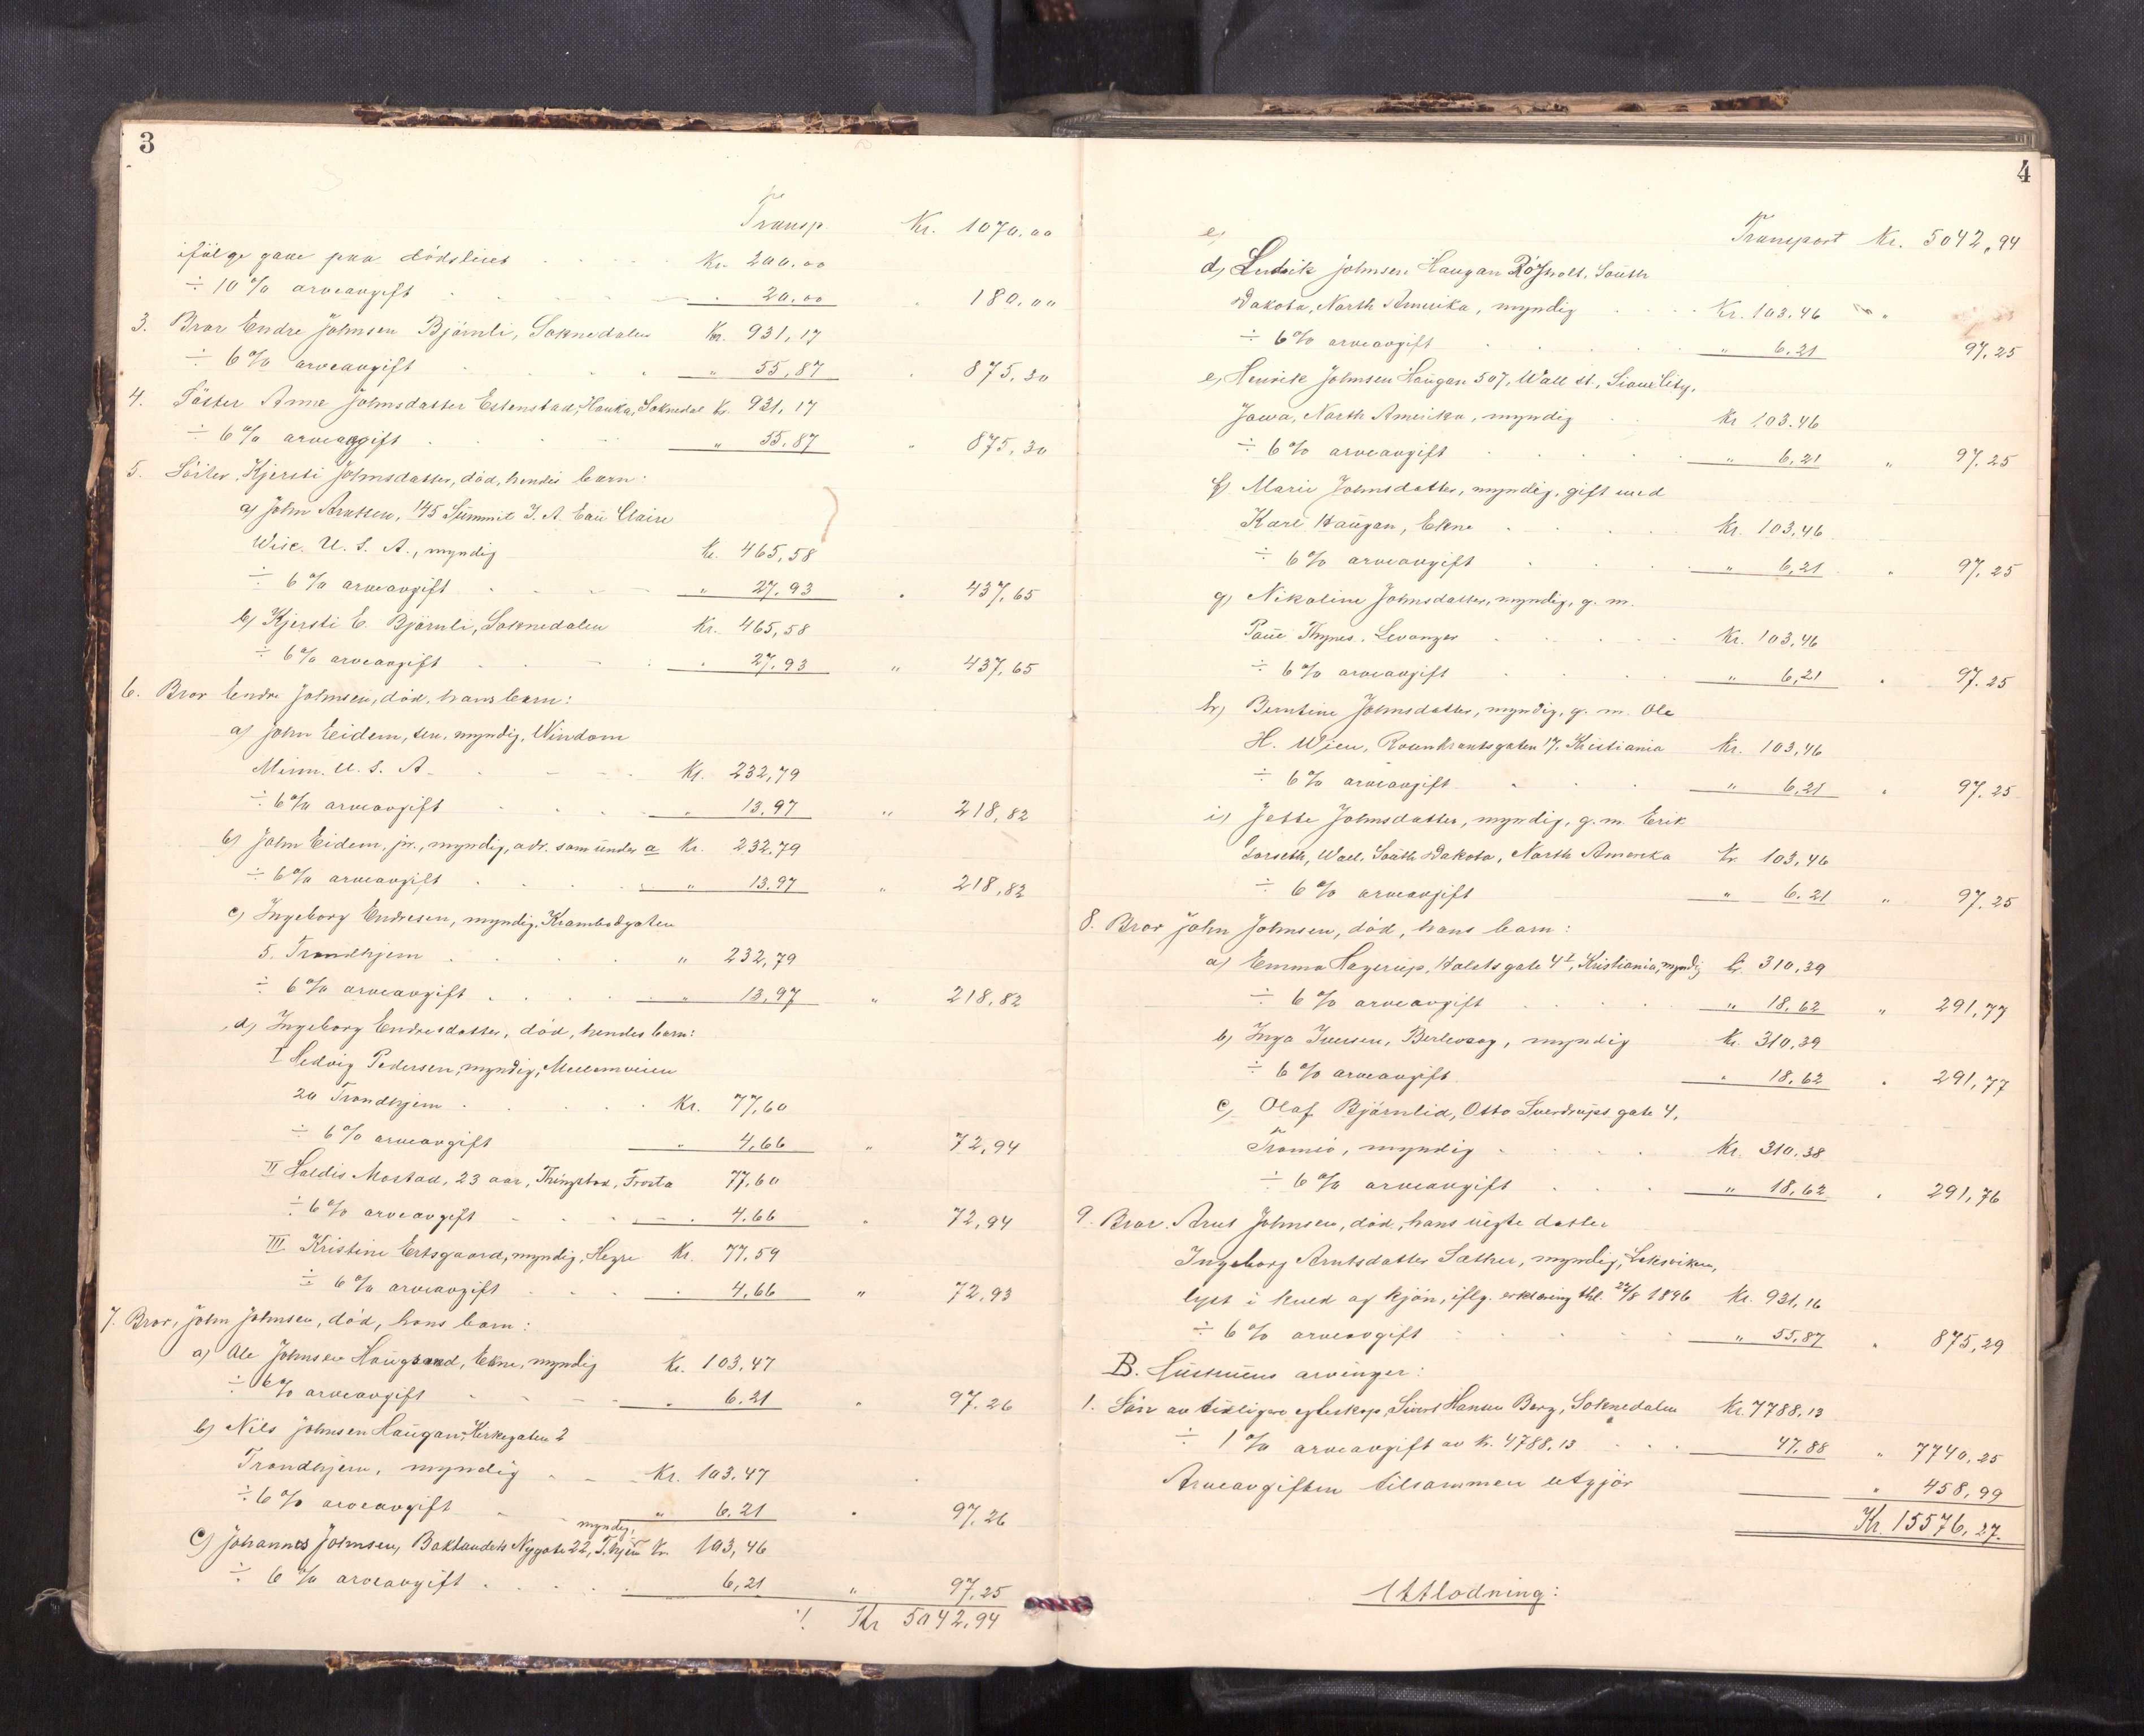 3
Transp. Kr. 1070.00
ifölge gave paa dödsleiet Kr. 200.00
÷ 10 % arveavgift " 20.00 " 180.00
3. Bror Endre Johnsen Björnli, Soknedalen Kr. 931,17
÷ 6 % arveavgift " 55,87 " 875,30
4. Söster Anne Johnsdatter Estenstad, Hauka, Soknedal Kr. 931,17
÷ 6 % arveavgift " 55,87 " 875,30
5. Söster, Kjersti Johnsdatter, död, hendes barn:
a) John Arntsen, 145 Summit I. A. Eau Claire
Wisc. U. S. A., myndig Kr. 465,58
÷ 6 % arveavgift " 27,93 " 437,65
b) Kjersti E. Björnli, Soknedalen Kr. 465,58
÷ 6 % arveavgift " 27,93 " 437,65
6. Bror Endre Johnsen, död, hans barn:
a) John Eidem, sen. myndig, Windom
Minn. U. S. A. Kr. 232,79
÷ 6 % arveavgift " 13,97 " 218,82
b) John Eidem, jr., myndig, adr. som under a Kr. 232,79
÷ 6 % arveavgift " 13,97 " 218,82
c) Ingeborg Endresen, myndig, Krambodgaten
5. Trondhjem " 232,79
÷ 6 % arveavgift " 13,97 " 218,82
d) Ingeborg Endresdatter, död, hendes barn:
I Hedvig Pedersen, myndig, Mellemveien
20 Trondhjem Kr. 77,60
÷ 6 % arveavgift " 4,66 " 72,94
II Haldis Mostad, 23 aar, Thingstad, Frosta 77,60
÷ 6 % arveavgift " 4,66 " 72,94
III Kristine Ertsgaard, myndig, Hegre Kr. 77,59
÷ 6 % arveavgift " 4,66 " 72,93
7. Bror, John Johnsen, död, hans barn:
a) Ole Johnsen Haugsand, Ekne, myndig Kr. 103,47
÷ 6 % arveavgift " 6.21 " 97.26
b) Nils Johnsen Haugan, Kirkegaten 2
Trondhjem, myndig Kr. 103.47
÷ 6 % arveavgift " 6,21 " 97,26
myndig,
c) Johannes Johnsen, Baklandets Nygate 22, T.hjem Kr. 103,46
÷ 6 % arveavgift 6,21 " 97,25
·/. Kr 5042,94
4
Transport Kr. 5042,94
e)
d) Ludvik Johnsen Haugan Rosholt, South
Dakota, North Amerika, myndig Kr. 103.46 "
÷ 6 % arveavgift " 6.21 97,25
e) Henrik Johnsen Haugan 507, Wall st., Sioux City,
Jowa, North Amerika, myndig Kr 103.46
÷ 6 % arveavgift " 6,21 " 97.25
f) Marie Johnsdatter, myndig, gift med
Karl Haugan, Ekne Kr. 103,46
÷ 6 % arveavgift " 6,21 " 97,25
g) Nikoline Johnsdatter, myndig, g. m.
Paul Thynes, Levanger Kr. 103,46
÷ 6 % arveavgift " 6,21 " 97.25
h) Berntine Johnsdatter, myndig, g. m. Ole
H. Wien, Rosenkrantsgaten 17, Kristiania Kr. 103,46
÷ 6 % arveavgift " 6,21 " 97.25
i) Jette Johnsdatter, myndig, g. m. Erik
Gorseth, Wall, South Dakota, North Amerika Kr. 103,46
÷ 6 % arveavgift " 6.21 " 97.25
8. Bror John Johnsen, död, hans barn:
a) Emma Hagerup, Holsts gate 4 I, Kristiania, myndig Kr. 310,39
÷ 6 % arveavgift " 18,62 " 291,77
b) Inga Iversen, Berlevaag, myndig Kr. 310,39
÷ 6 % arveavgift " 18.62 " 291,77
c) Olaf Björnlid, Otto Sverdrups gate 4,
Tromsö, myndig Kr. 310.38
÷ 6 % arveavgift " 18,62 " 291,76
9. Bror Arnt Johnsen, död, hans uegte datter
Ingeborg Arntsdatter Sæther, myndig, Leksviken,
lyst i kuld og kjön, iflg. erklæring thl. 22/8 1896 Kr. 931,16
÷ 6 % arveavgift " 55,87 " 875,29
B. Hustruens arvinger:
1. Sön av tidligere egteskap, Sivert Hansen Berg, Soknedalen Kr. 7788,13
÷ 1 % arveavgift av Kr. 4788.13 47.88 " 7740,25
Arveavgiften tilsammen utgjör " 458,99
Kr. 15576,27.
Utlodning: